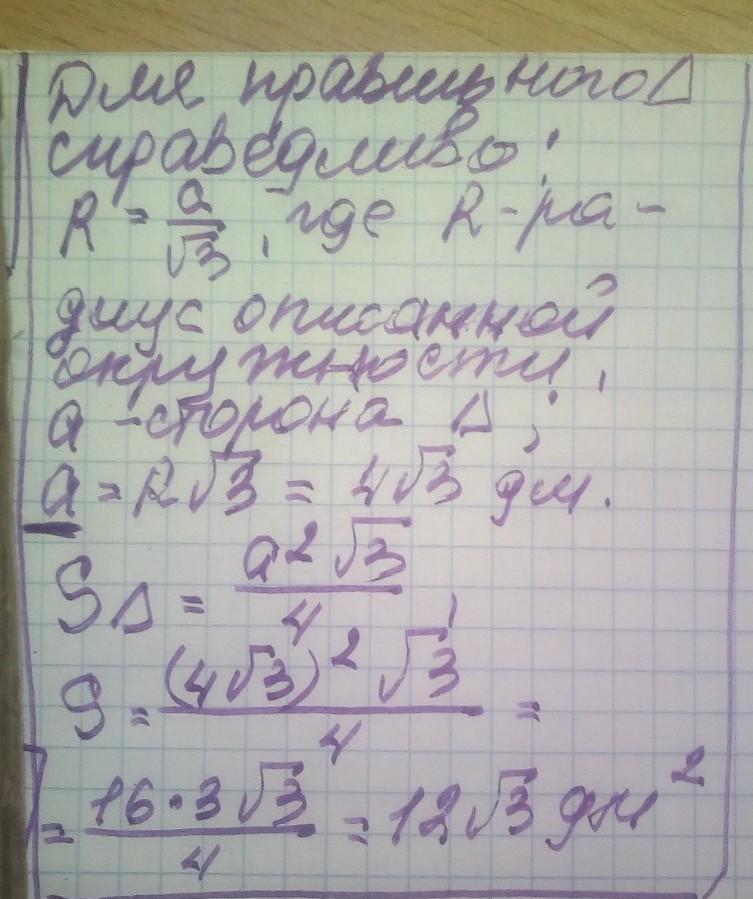 Для правильного Δ
справедливо:
R = a/√3, где R - ра-
диус описанной
окружности,
a - сторона Δ;
a = R√3 = 4√3 дм.
SΔ = a²√3/4,
S = (4√3)²√3/4 =
= 16·3√3/4 = 12√3 дм²